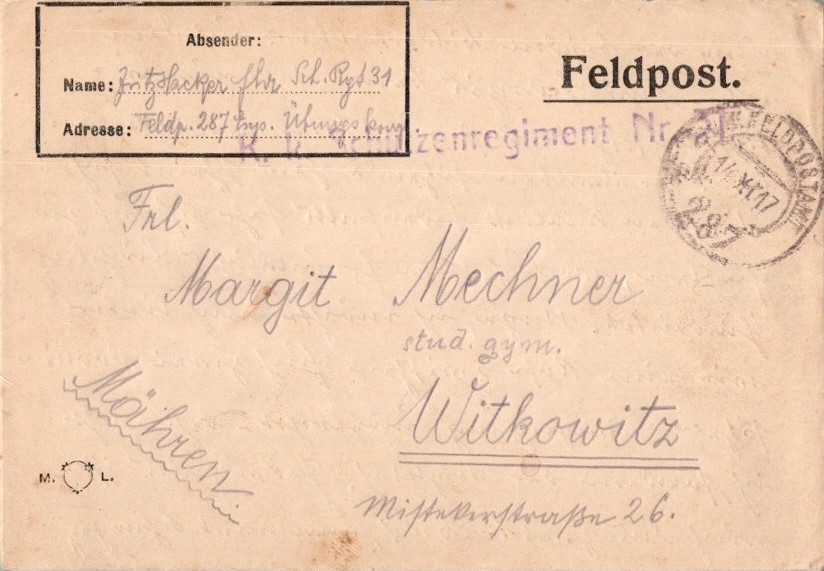 Absender:
Name: Fritz Hacker fhr Sch. Rgt 31
Adresse: Feldp. 287 Übungs
Feldpost.
K. k. Schützenregiment Nr. 31
K.u.K. FELDPOSTAMT
14.XI.17
287
Frl.
Margit Mechner
stud. gym.
Witkowitz
Mähren
M. L.
Mistekerstraße 26.